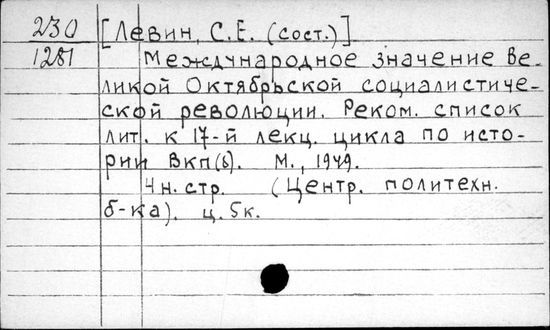 230 [Левин, С.Е. (сост.)]
1281 Международное значение Ве-
ликой Октябрьской социалистиче-
ской революции. Реком. список
лит. к 17-й лекц. цикла по исто-
рии ВКП(б). М., 1949.
4 н. стр. (Центр. политехн.
б-ка). ц. 5к.